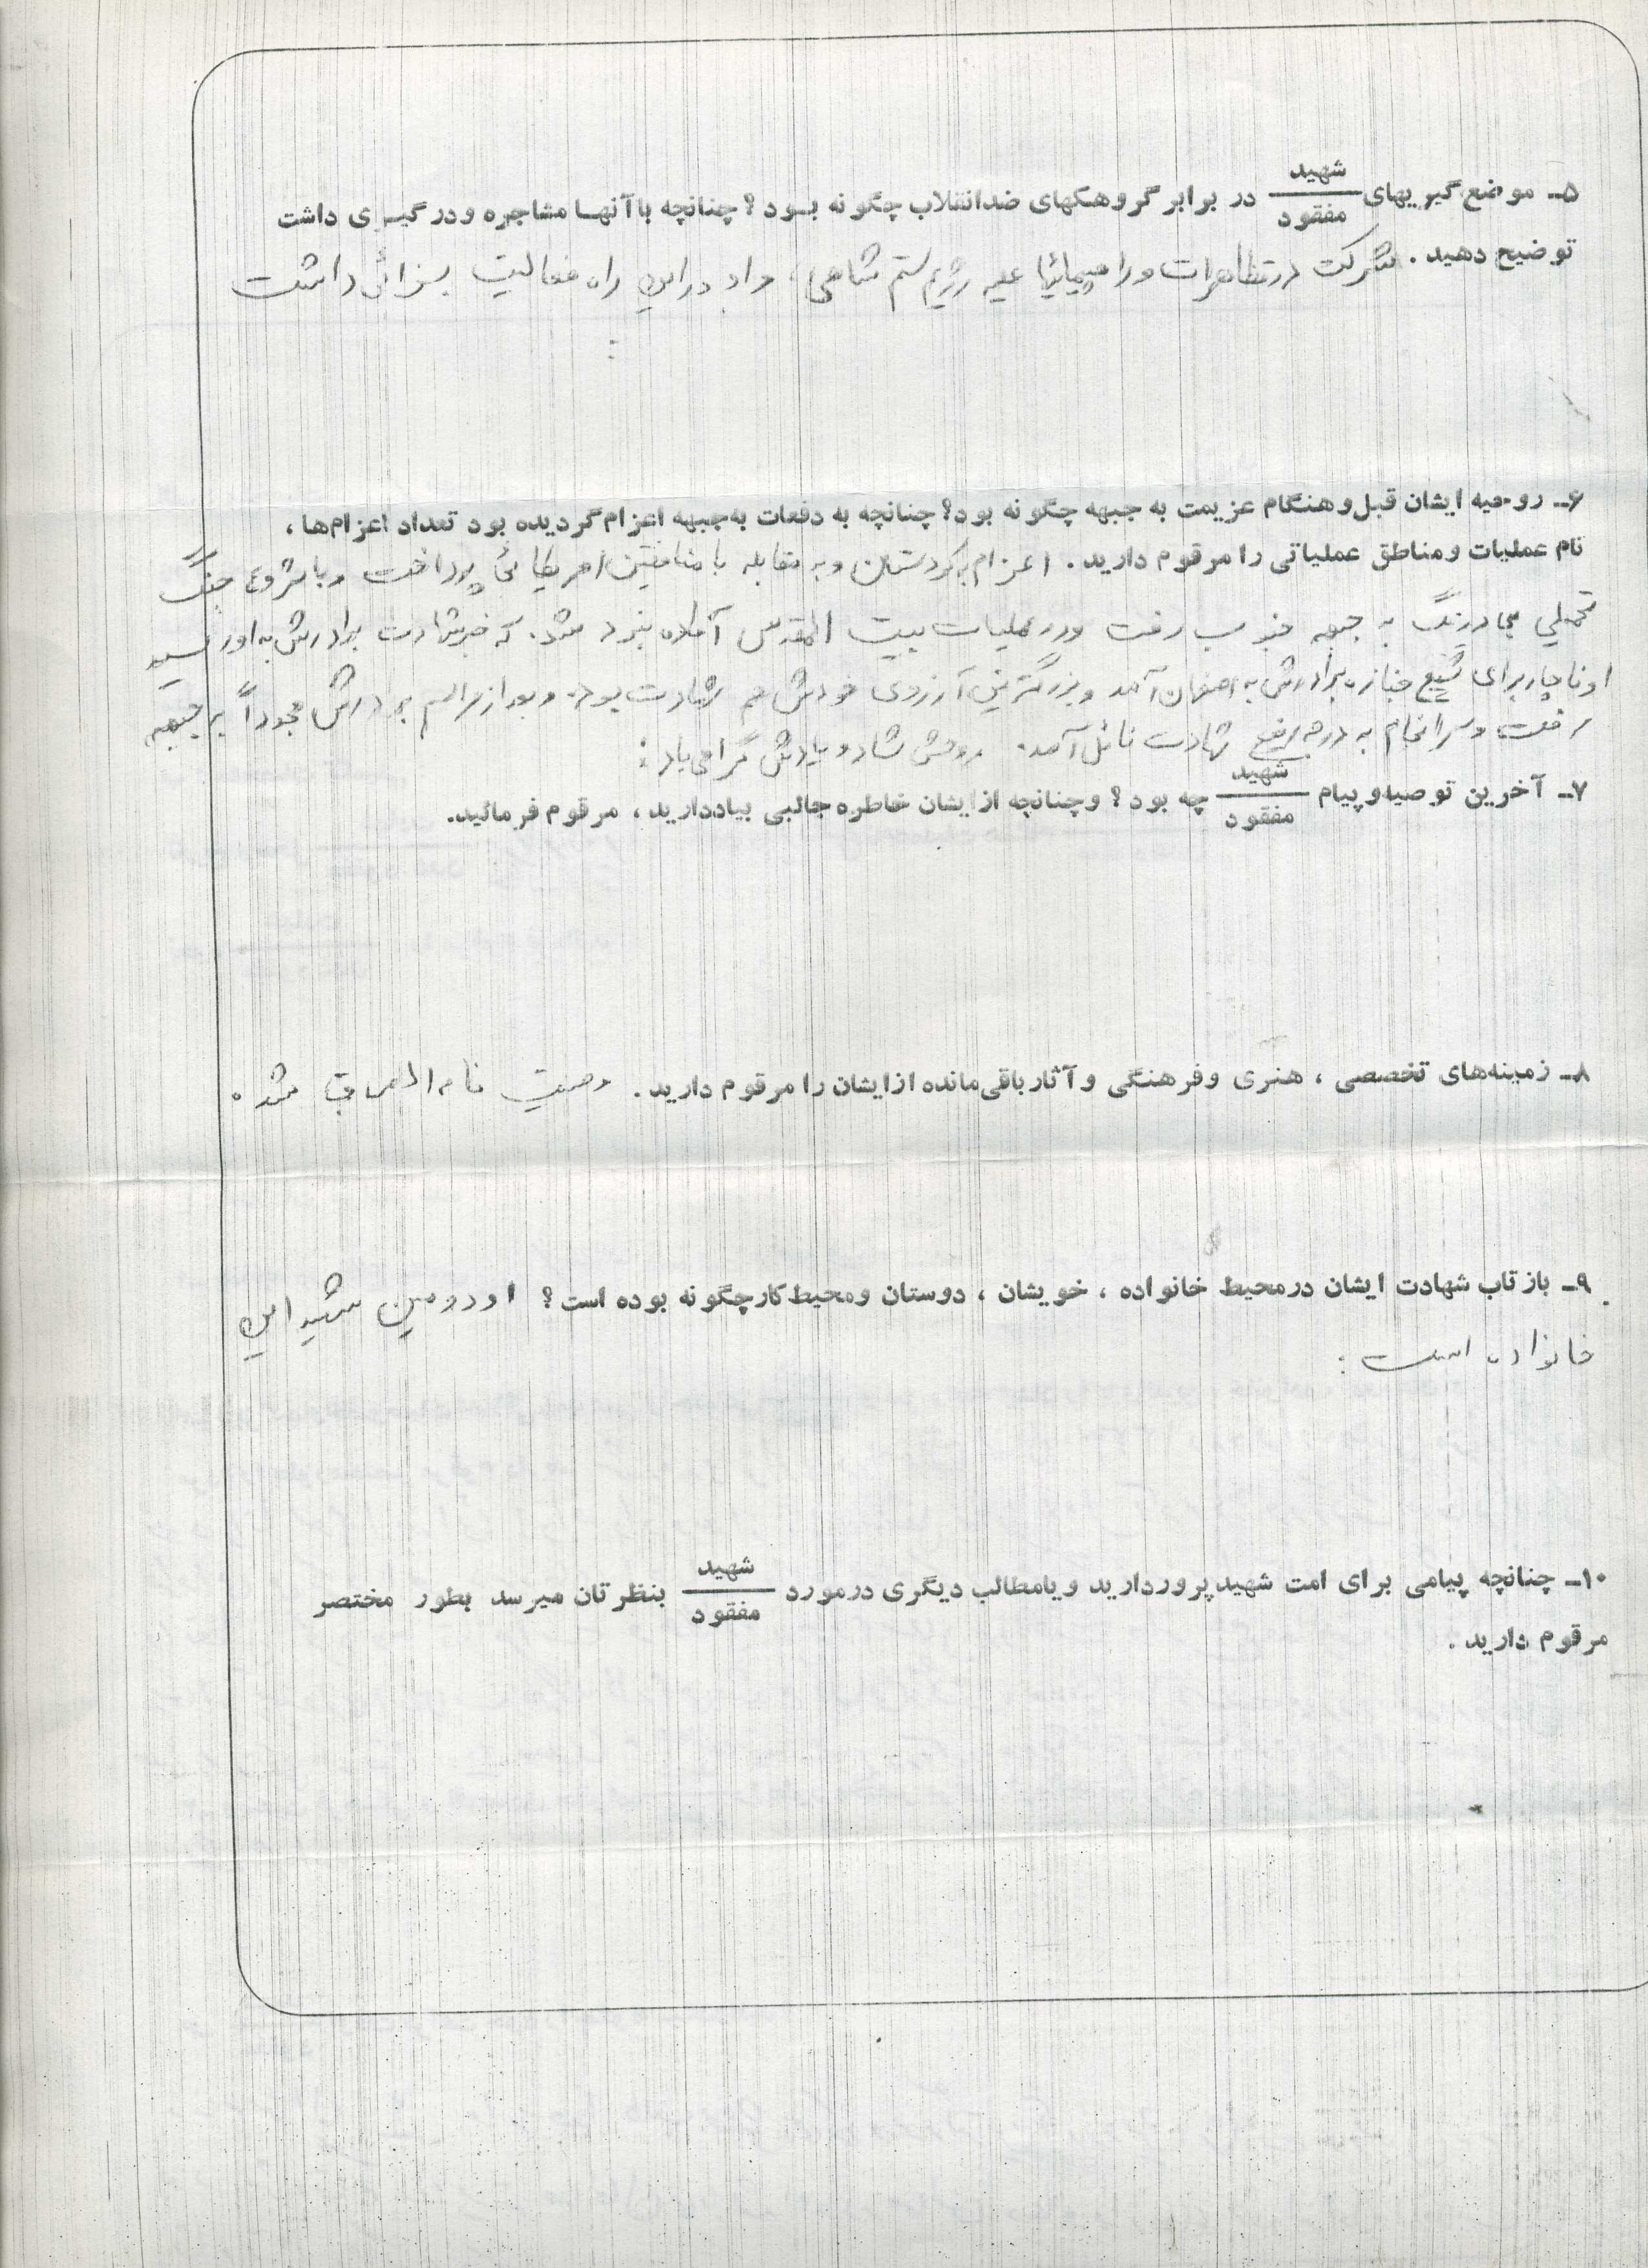 ۵ـ موضع‌گیریهای شهید/مفقود در برابر گروهکهای ضدانقلاب چگونه بود؟ چنانچه با آنها مشاجره و درگیری داشت
توضیح دهید. شرکت در تظاهرات و راهپیمائیها علیه رژیم ستم شاهی، و او در این راه فعالیت بسزائی داشت
۶ـ روحیه ایشان قبل و هنگام عزیمت به جبهه چگونه بود؟ چنانچه به دفعات به جبهه اعزام گردیده بود تعداد اعزام‌ها،
نام عملیات و مناطق عملیاتی را مرقوم دارید. اعزام به کردستان و به مقابله با منافقین امریکائی پرداخت و با شروع جنگ
تحمیلی بیدرنگ به جبهه جنوب رفت و در عملیات بیت المقدس آماده نبرد شد. که خبر شهادت برادرش به او رسید
او ناچار برای تشییع جنازه برادرش به اصفهان آمد و بزرگترین آرزوی خودش هم شهادت بود. و بعد از مراسم برادرش مجدداً به جبهه
رفت و سرانجام به درجه رفیع شهادت نائل آمد. روحش شاد و یادش گرامی باد:
۷ـ آخرین توصیه و پیام شهید/مفقود چه بود؟ و چنانچه از ایشان خاطره جالبی بیاد دارید، مرقوم فرمائید.
۸ـ زمینه‌های تخصصی، هنری و فرهنگی و آثار باقی‌مانده از ایشان را مرقوم دارید. وصیت نامه الصاق شد.
۹ـ بازتاب شهادت ایشان در محیط خانواده، خویشان، دوستان و محیط کار چگونه بوده است؟ او دومین شهید این
خانواده است:
۱۰ـ چنانچه پیامی برای امت شهیدپرور دارید و یا مطالب دیگری در مورد شهید/مفقود بنظرتان میرسد بطور مختصر
مرقوم دارید.